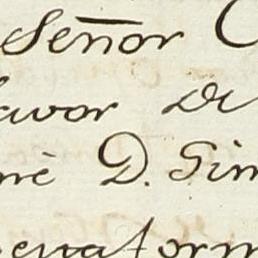 Señor C
avor de
mé D. Sim
enaform